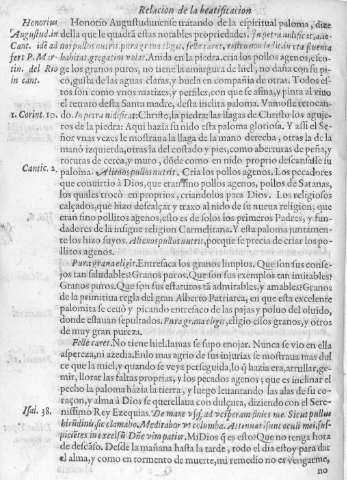 Relacion de la beatificacion
Honorius
August.ăin
Cant. idē ad
fert P. Mar
tin. del Rio
in cant.
Honorio Augustudunense tratando de la espiritual paloma, dize
della que le quadrã estas notables propriedades. In petra nidificat, alie-
nos pullos nutrit, pura grana eligit, felle caret, iuxta
habitat, gregatim volat. Anida en la piedra, cria los pollos agenos, esco-
ge los granos puros, no tiene la amargura de hiel, no daña con su pi-
co, gusta de las aguas claras, y buela en compañia de otras. Todos es-
tos son como vnos matizes, y perfiles, con que se afina, y pinta al vivo
el retrato desta Santa madre, desta inclita paloma. Vamosle retocan-
1. Corint. 10.
do. In petra nidificat: Christo, la piedra: las llagas de Christo los aguje-
ros de la piedra: Aqui hazia su nido esta paloma gloriosa. Y assi el Se-
ñor vnas vezes le mostraua la llaga de la mano derecha, otras la de la
manó izquierda, otras la del costado y pies, como aberturas de peña, y
Cantic. 2.
roturas de cerca, y muro, dõde como en nido proprio descansasse su
paloma. Alienos pullos nutrit. Cria los pollos agenos. Los pecadores
que conuirtiò à Dios, que eran sino pollos agenos, pollos de Satanas,
los quales trocò en proprios, criandolos para Dios. Los religiosos
calçados, que hizo descalçar y traxo al nido de su nueua religion, que
eran sino pollitos agenos, esto es de solos los primeros Padres, y fun-
dadores de la insigne religion Carmelitana. Y esta paloma juntamen-
te los hizo suyos. Alienos pullos nutrit, porque se precia de criar los po-
llitos agenos.
Pura grana eligit. Entresaca los granos limpios. Que son sus conse-
jos tan saludables? Granos puros. Que son sus exemplos tan imitables?
Granos puros. Que son sus estatutos tã admirables, y amables? Granos
de la primitiua regla del gran Alberto Patriarca, en que esta excelente
palomita se ceuò y picando entresaco de las pajas y poluo del oluido,
donde estauan sepultados. Pura grana eligit, eligio estos granos, y otros
de muy gran pureza.
Felle caret. No tiene hiel. Iamas se supo enojar. Nunca se vio en ella
aspereza, ni azedia. En lo mas agrio de sus injurias se mostraua mas dul
ce que la miel, y quando se veya perseguida, lo q̃ hazia era, arrullar, ge-
mir, llorar las faltas proprias, y los pecados agenos; que es inclinar el
pecho la paloma hazia la tierra, y luego leuantando las alas de su co-
raçon, y alma à Dios se querellaua con dulçura, diziendo con el Sere-
Isai. 38.
nissimo Rey Ezequias. De mane vsq; ad vesperam finies me. Sicut pullus
hirũdinis, sic clamabo. Meditabor vt columba. Attenuati sunt oculi mei, sus-
picientes in excelsũ. Dñe vim patior. Mi Dios q̃ es esto? Que no tenga hora
de descãso. Desde la mañana hasta la tarde, todo el dia estoy para dar
el alma, y como en tormento de muerte, mi remedio no es vengarme,
no